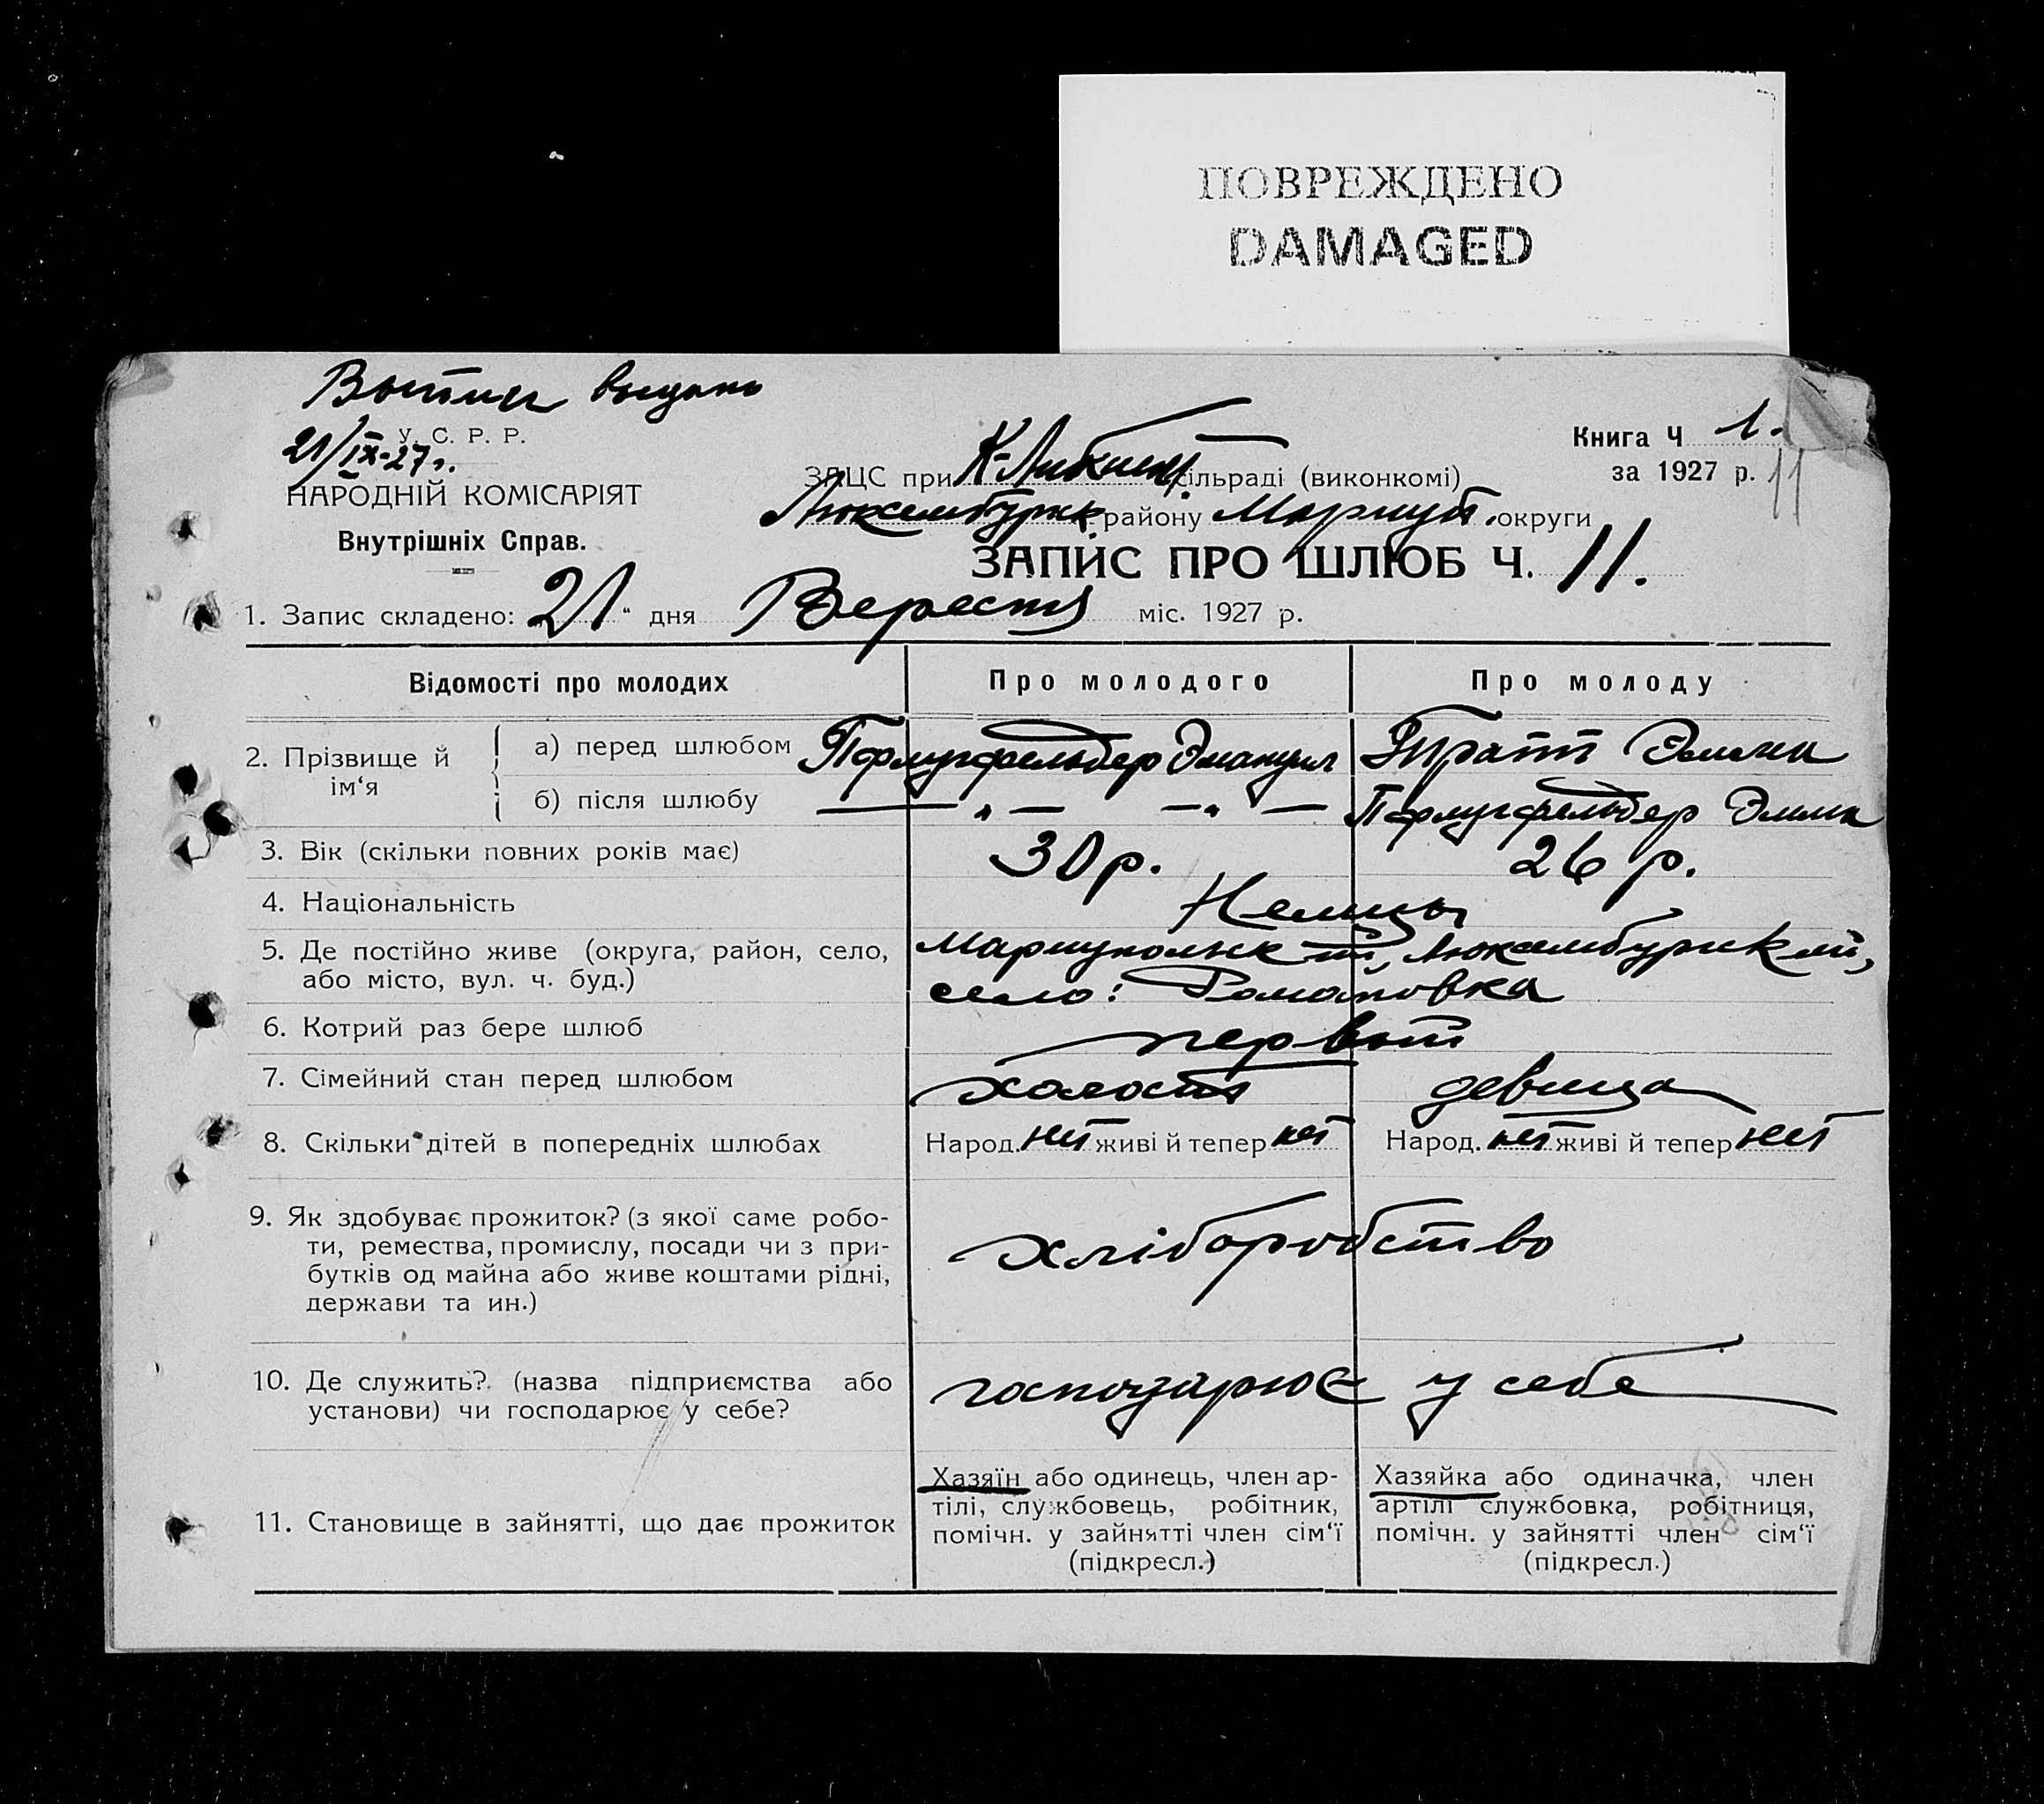 ПОВРЕЖДЕНО
DAMAGED
Выпись выдана
21/IX-27г.
У. С. Р. Р.
НАРОДНІЙ КОМІСАРІЯТ
Внутрішніх Справ.
Книга Ч 1.
за 1927 р. 11
ЗАЦС при К-Либкнехт. сільраді (виконкомі)
Люксембургск району Мариуп. округи
ЗАПИС ПРО ШЛЮБ Ч. 11.
1. Запис складено: 21 " дня Вересня міс. 1927 р.
Відомості про молодих
Про молодого
Про молоду
2. Прізвище й ім‘я
а) перед шлюбом Эмануил Тратт Эмма
б) після шлюбу — „ — — „ — Эмма
3. Вік (скільки повних років має) 30 р. 26 р.
4. Національність Немцы
5. Де постійно живе (округа, район, село, Мариупольск ий, Люксембургск ий,
або місто, вул. ч. буд.) село: Романовка
6. Котрий раз бере шлюб первый
7. Сімейний стан перед шлюбом холост девица
8. Скільки дітей в попередніх шлюбах Народ. нет живі й тепер нет Народ. нет живі й тепер нет
9. Як здобуває прожиток? (з якої саме робо-
ти, ремества, промислу, посади чи з при-
бутків од майна або живе коштами рідні,
держави та ин.)
хліборобство
10. Де служить? (назва підприємства або
установи) чи господарює у себе?
господарює у себе
11. Становище в зайнятті, що дає прожиток
Хазяїн або одинець, член ар-
тілі, службовець, робітник,
помічн. у зайнятті член сім‘ї
(підкресл.)
Хазяйка або одиначка, член
артілі службовка, робітниця,
помічн. у зайнятті член сім‘ї
(підкресл.)